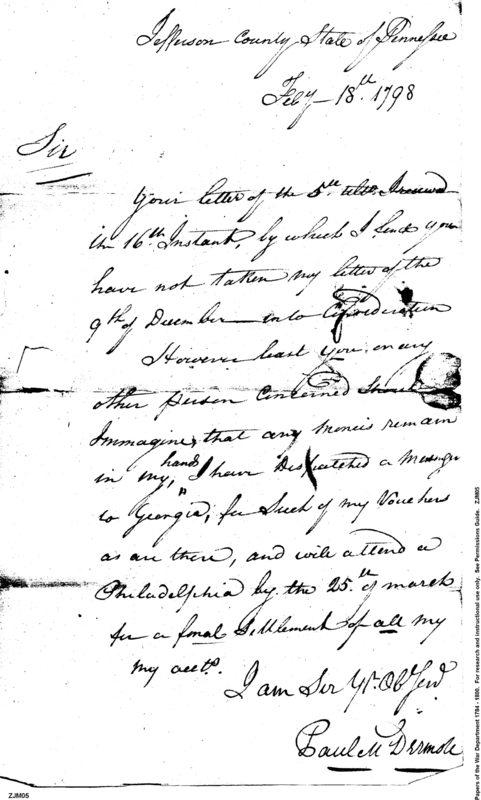 Jefferson County State of Tennessee
Feby 18th. 1798
Sir
Your letter of the 5th. ulto. I received
the 16th. Instant, by which I find you
have not taken my letter of the
9th of December into Consideration
However least you or any
other person Concerned Should
Immagine, that any Moneis remain
in my hands, I have Dispatched a Messenger
to Georgia, for Such of my Vouchers
as are there, and will attend a
Philadelphia by the 25th. of march
for a final Settlement of all my
my acctts.
I am Sir Yr. Ob Serv
Paul Mc Dermott
Papers of the War Department 1784 - 1800. For research and instructional use only. See Permissions Guide. ZJM05
ZJM05